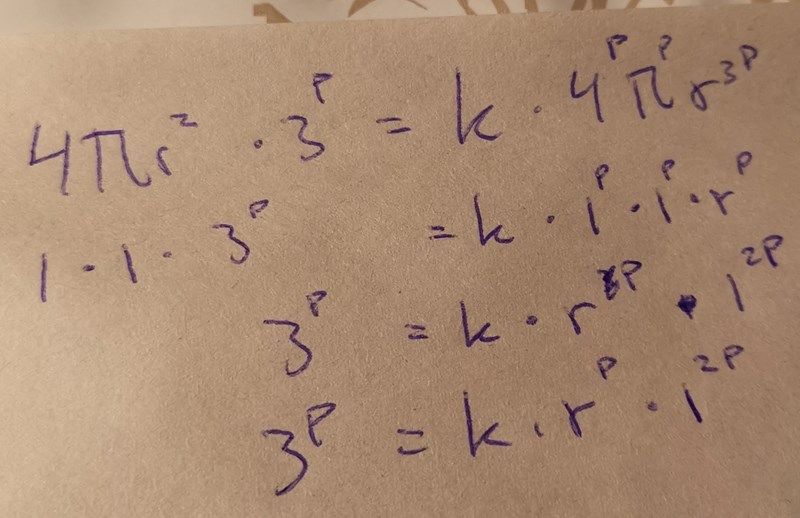 4πr² · 3ᵖ = k · 4ᵖ πᵖ r³ᵖ
1 · 1 · 3ᵖ = k · 1ᵖ · 1ᵖ · rᵖ
3ᵖ = k · rᵖ · 1²ᵖ
3ᵖ = k · rᵖ · 1²ᵖ